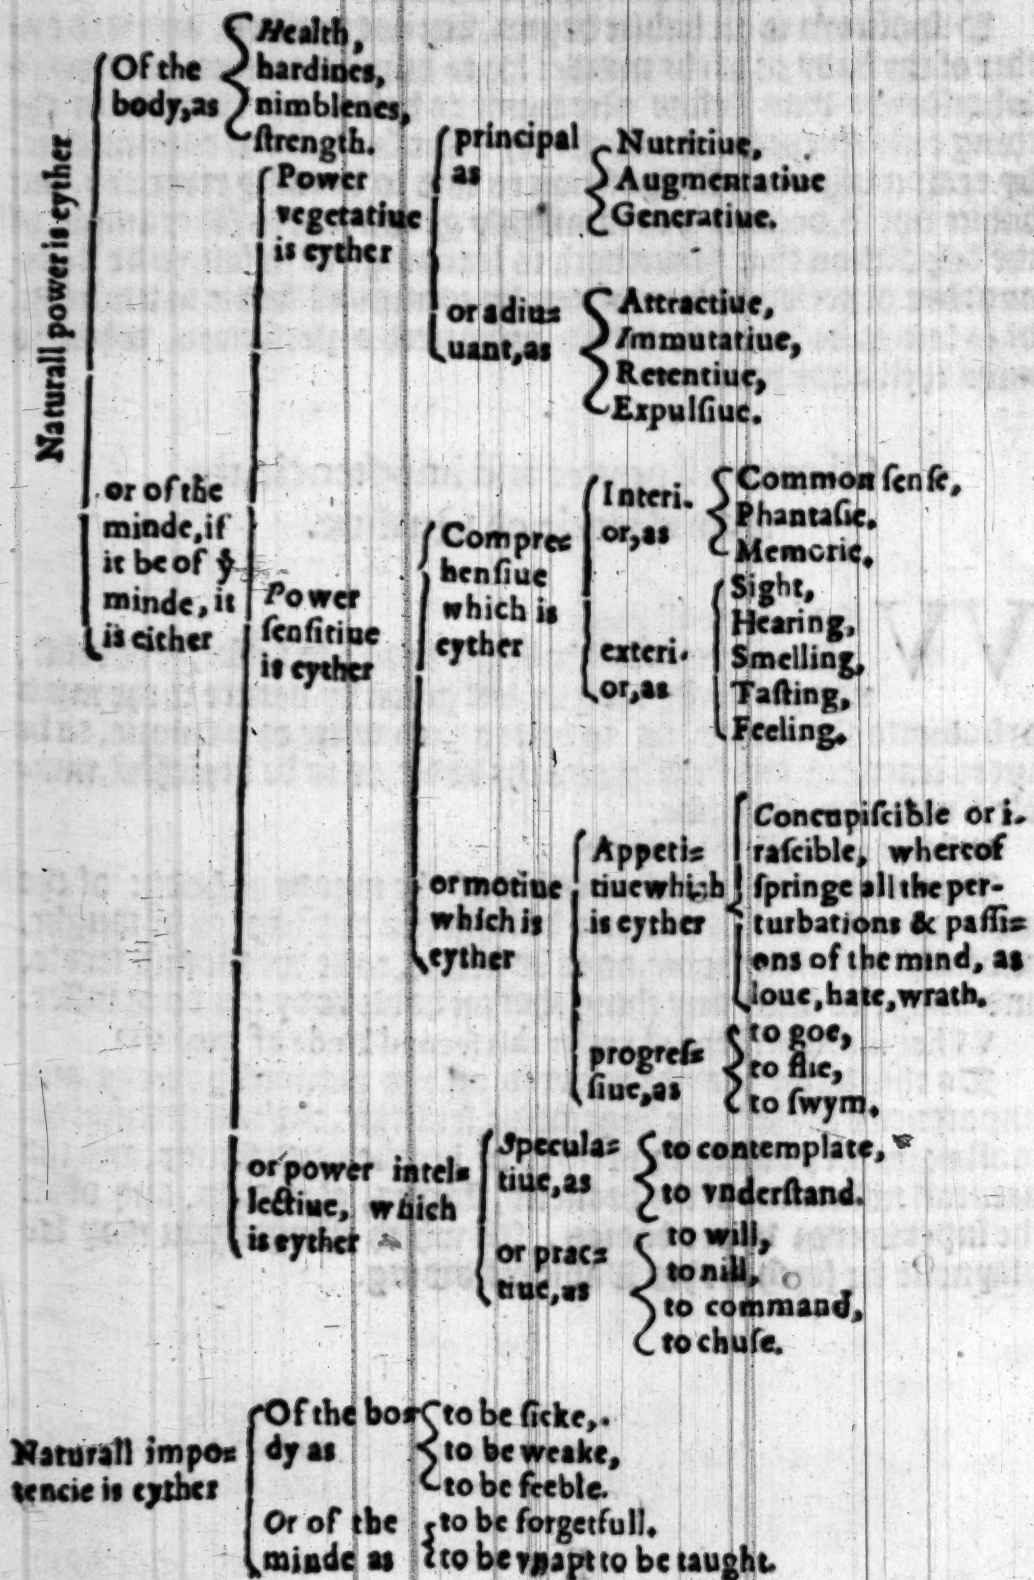 Naturall power is eyther
Of the
body,as
Health,
hardines,
nimblenes,
ſtrength.
or of the
minde,if
it be of yͤ
minde, it
is either
Power
vegetatiue
is eyther
principal
as
Nutritiue,
Augmentatiue
Generatiue.
or adiu=
uant,as
Attractiue,
Immutatiue,
Retentiue,
Expulſiue.
Power
ſenſitiue
is eyther
Compre=
henſiue
which is
eyther
Interi.
or,as
Common ſenſe,
Phantaſie.
Memorie.
exteri.
or,as
Sight,
Hearing,
Smelling,
Taſting,
Feeling.
or motiue
which is
eyther
Appeti=
tiue which
is eyther
Concupiſcible or i.
raſcible, whereof
ſpringe all the per-
turbations & paſſi=
ons of the mind, as
loue,hate,wrath.
progreſ=
ſiue,as
to goe,
to flie,
to ſwym.
or power intel=
lectiue, which
is eyther
Specula=
tiue,as
to contemplate,
to vnderſtand.
or prac=
tiue,as
to will,
to nill,
to command,
to chuſe.
Naturall impo=
tencie is eyther
Of the bo=
dy as
to be ſicke,.
to be weake,
to be feeble.
Or of the
minde as
to be forgetfull.
to be vnapt to be taught.